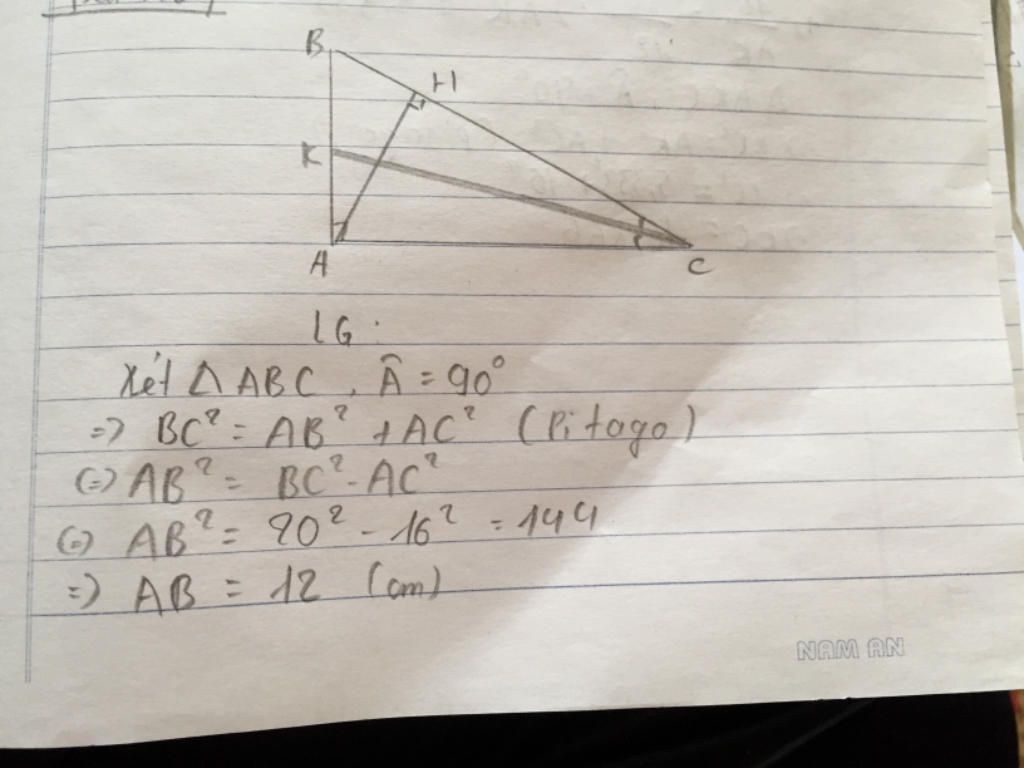 B
H
K
A
C
LG:
Xét △ABC, Â = 90°
=> BC² = AB² + AC² (Pitago)
(=) AB² = BC² - AC²
(=) AB² = 20² - 16² = 144
=) AB = 12 (cm)
NAM AN